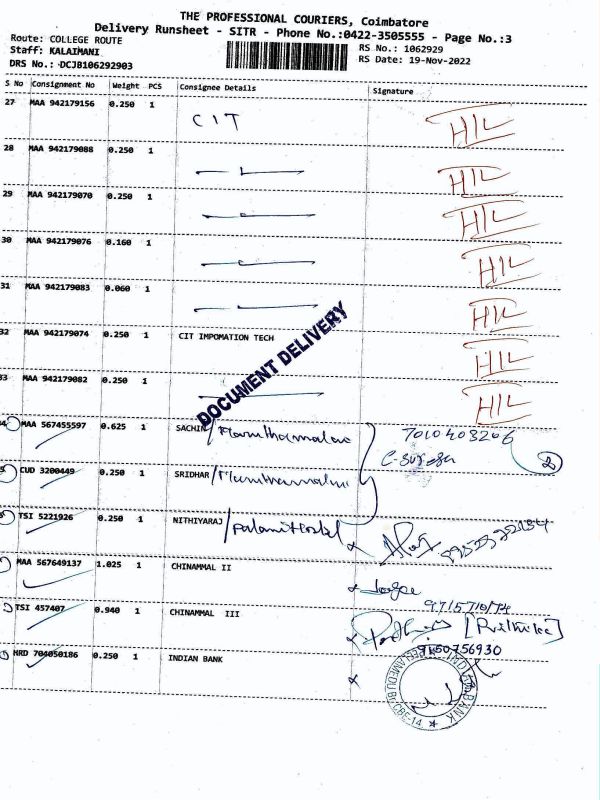 THE PROFESSIONAL COURIERS, Coimbatore
Delivery Runsheet - SITR - Phone No.:0422-3505555 - Page No.:3
Route: COLLEGE ROUTE
Staff: KALAIMANI
DRS No.: DCJB106292903
RS No.: 1062929
RS Date: 19-Nov-2022
S No Consignment No Weight PCS Consignee Details Signature
27 MAA 942179156 0.250 1 CIT HIL
28 MAA 942179088 0.250 1 HIL
29 MAA 942179070 0.250 1 HIL
30 MAA 942179076 0.160 1 HIL
31 MAA 942179083 0.060 1 HIL
32 MAA 942179074 0.250 1 CIT IMPOMATION TECH HIL
33 MAA 942179082 0.250 1 HIL
DOCUMENT DELIVERY
MAA 567455597 0.625 1 SACHIN / 7010403206
2
CUD 3200449 0.250 1 SRIDHAR /
TSI 5221926 0.250 1 NITHIYARAJ /
MAA 567649137 1.025 1 CHINAMMAL II
TSI 457407 0.940 1 CHINAMMAL III
9150756930
HRD 704050186 0.250 1 INDIAN BANK